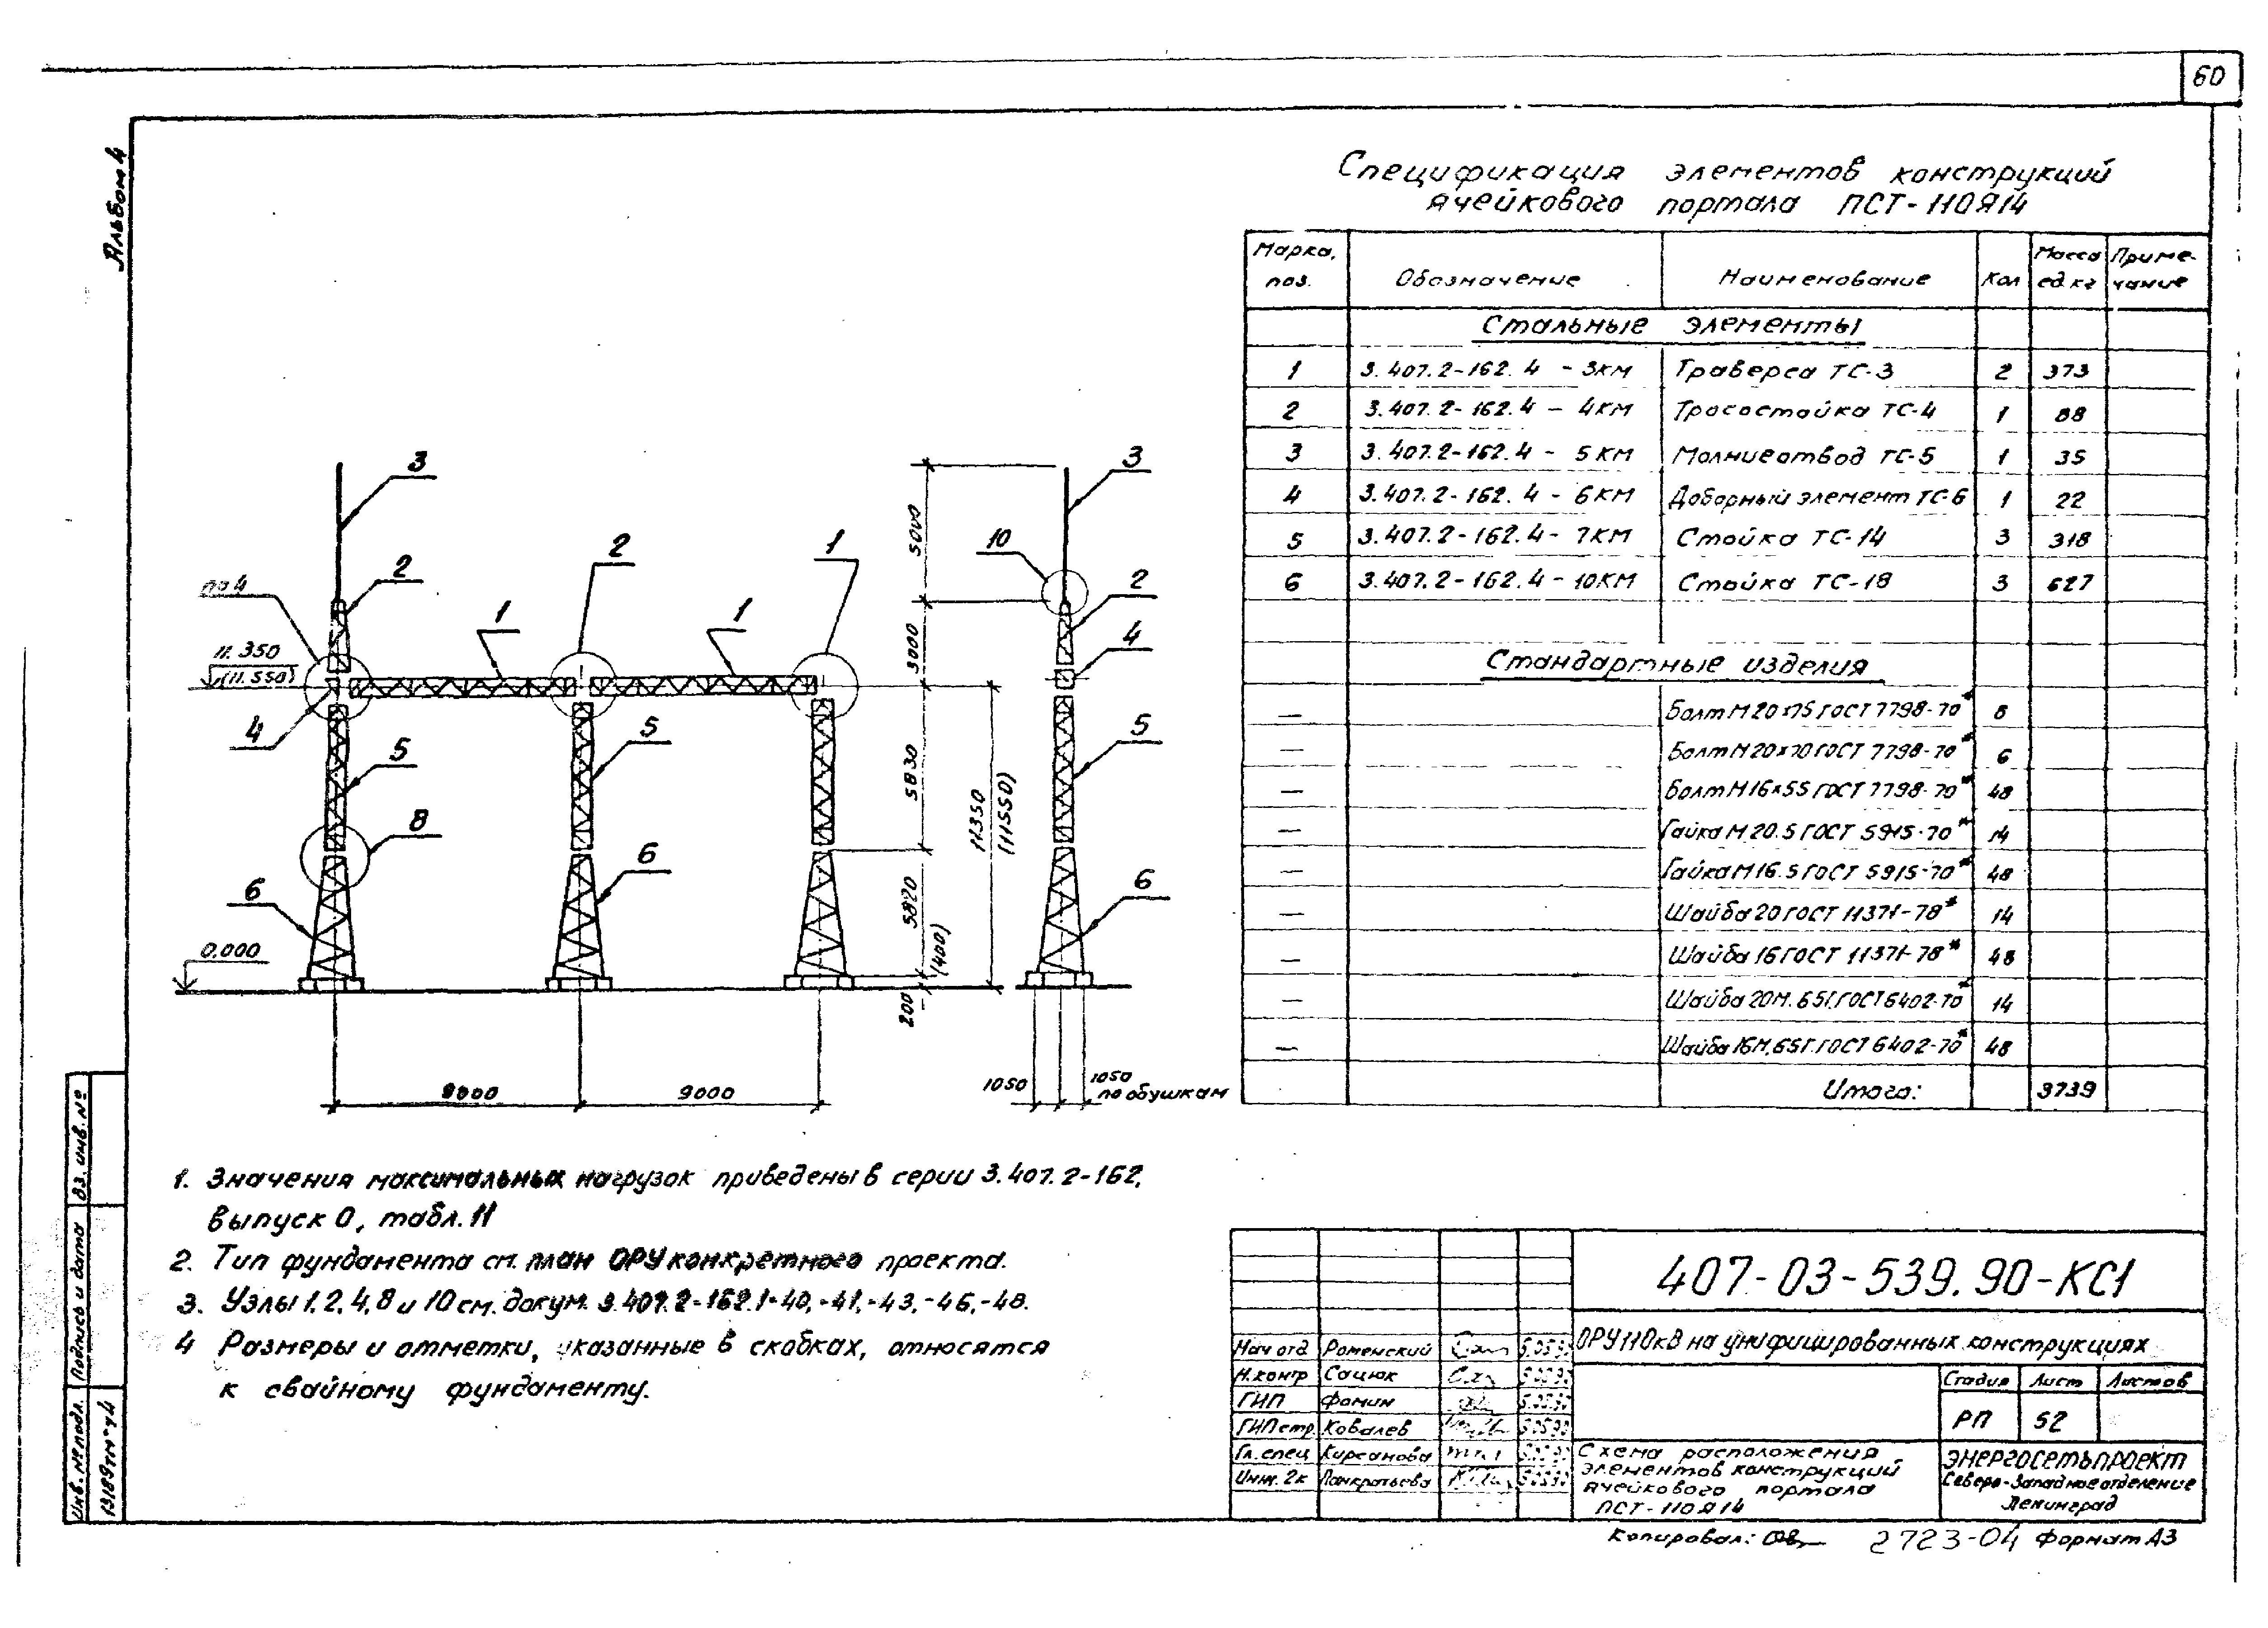 60
Альбом 4
Спецификация элементов конструкций
ячейкового портала ПСТ-110Я14
Марка, поз. Обозначение Наименование Кол Масса ед.кг Примечание
Стальные элементы
1 3.407.2-162.4 - 3КМ Траверса ТС-3 2 373
2 3.407.2-162.4 - 4КМ Тросостойка ТС-4 1 88
3 3.407.2-162.4 - 5КМ Молниеотвод ТС-5 1 35
4 3.407.2-162.4 - 6КМ Доборный элемент ТС-6 1 22
5 3.407.2-162.4 - 7КМ Стойка ТС-14 3 318
6 3.407.2-162.4 - 10КМ Стойка ТС-18 3 627
Стандартные изделия
— Болт М20х75 ГОСТ 7798-70* 8
— Болт М20х70 ГОСТ 7798-70* 6
— Болт М16х55 ГОСТ 7798-70* 48
— Гайка М20.5 ГОСТ 5915-70* 14
— Гайка М16.5 ГОСТ 5915-70* 48
— Шайба 20 ГОСТ 11371-78* 14
— Шайба 16 ГОСТ 11371-78* 48
— Шайба 20Н.65Г.ГОСТ 6402-70* 14
— Шайба 16Н.65Г.ГОСТ 6402-70* 48
Итого: 3739
3
3
5000
10
2
1
2
2
по 4
1
1
3000
4
11.350
(11.550)
4
5
5
5
5830
11350
(11550)
8
6
6
6
5820
(400)
0.000
200
9000
9000
1050
1050
по обушкам
1. Значения максимальных нагрузок приведены в серии 3.407.2-162,
выпуск 0, табл. 11
2. Тип фундамента см. план ОРУ конкретного проекта.
3. Узлы 1, 2, 4, 8 и 10 см. докум. 3.407.2-162.1-40, -41, -43, -46, -48.
4 Размеры и отметки, указанные в скобках, относятся
к свайному фундаменту.
407-03-539.90-КС1
ОРУ 110кВ на унифицированных конструкциях
Нач отд Роменский
Н.контр Сацюк
ГИП Фомин
ГИП стр. Ковалев
Гл.спец Кирсанова
Инж. 2к Панкратьева
Стадия Лист Листов
РП 52
Схема расположения
элементов конструкций
ячейкового портала
ПСТ-110Я14
ЭНЕРГОСЕТЬПРОЕКТ
Северо-Западное отделение
Ленинград
Копировал: 2723-04 Формат А3
Инв. № подл. Подпись и дата Вз. инв. №
13189тм-т4